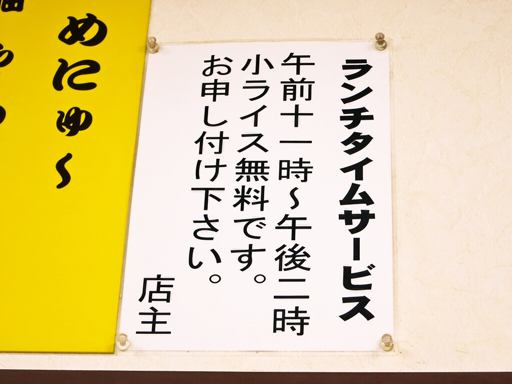 ランチタイムサービス
午前十一時～午後二時
小ライス無料です。
お申し付け下さい。
店主
めにゅ～